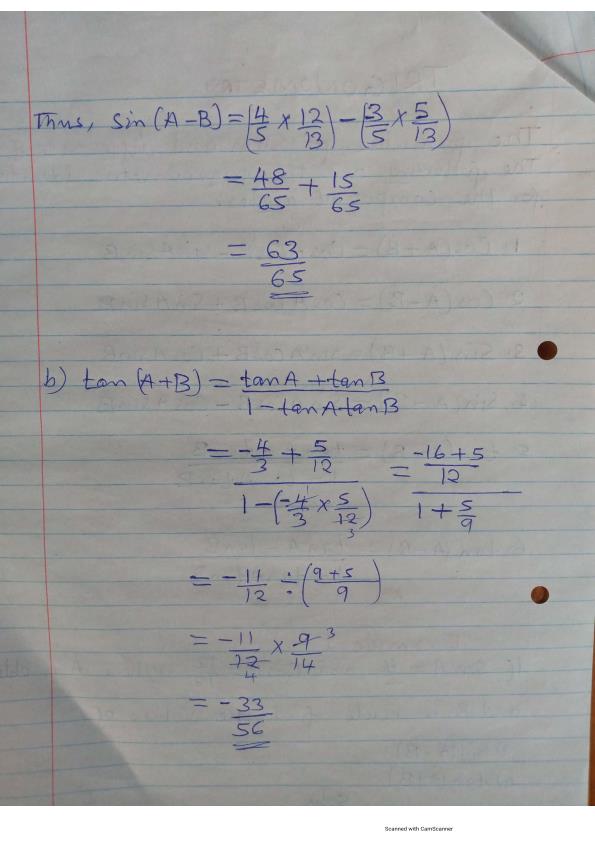 Thus, sin(A-B) = (4/5 × 12/13) - (3/5 × 5/13)
= 48/65 + 15/65
= 63/65
b) tan(A+B) = tanA + tanB / 1 - tanAtanB
= -4/3 + 5/12 / 1 - (-4/3 × 5/12 3) = -16+5/12 / 1 + 5/9
= -11/12 ÷ (9+5/9)
= -11/12 4 × 9 3/14
= -33/56
Scanned with CamScanner